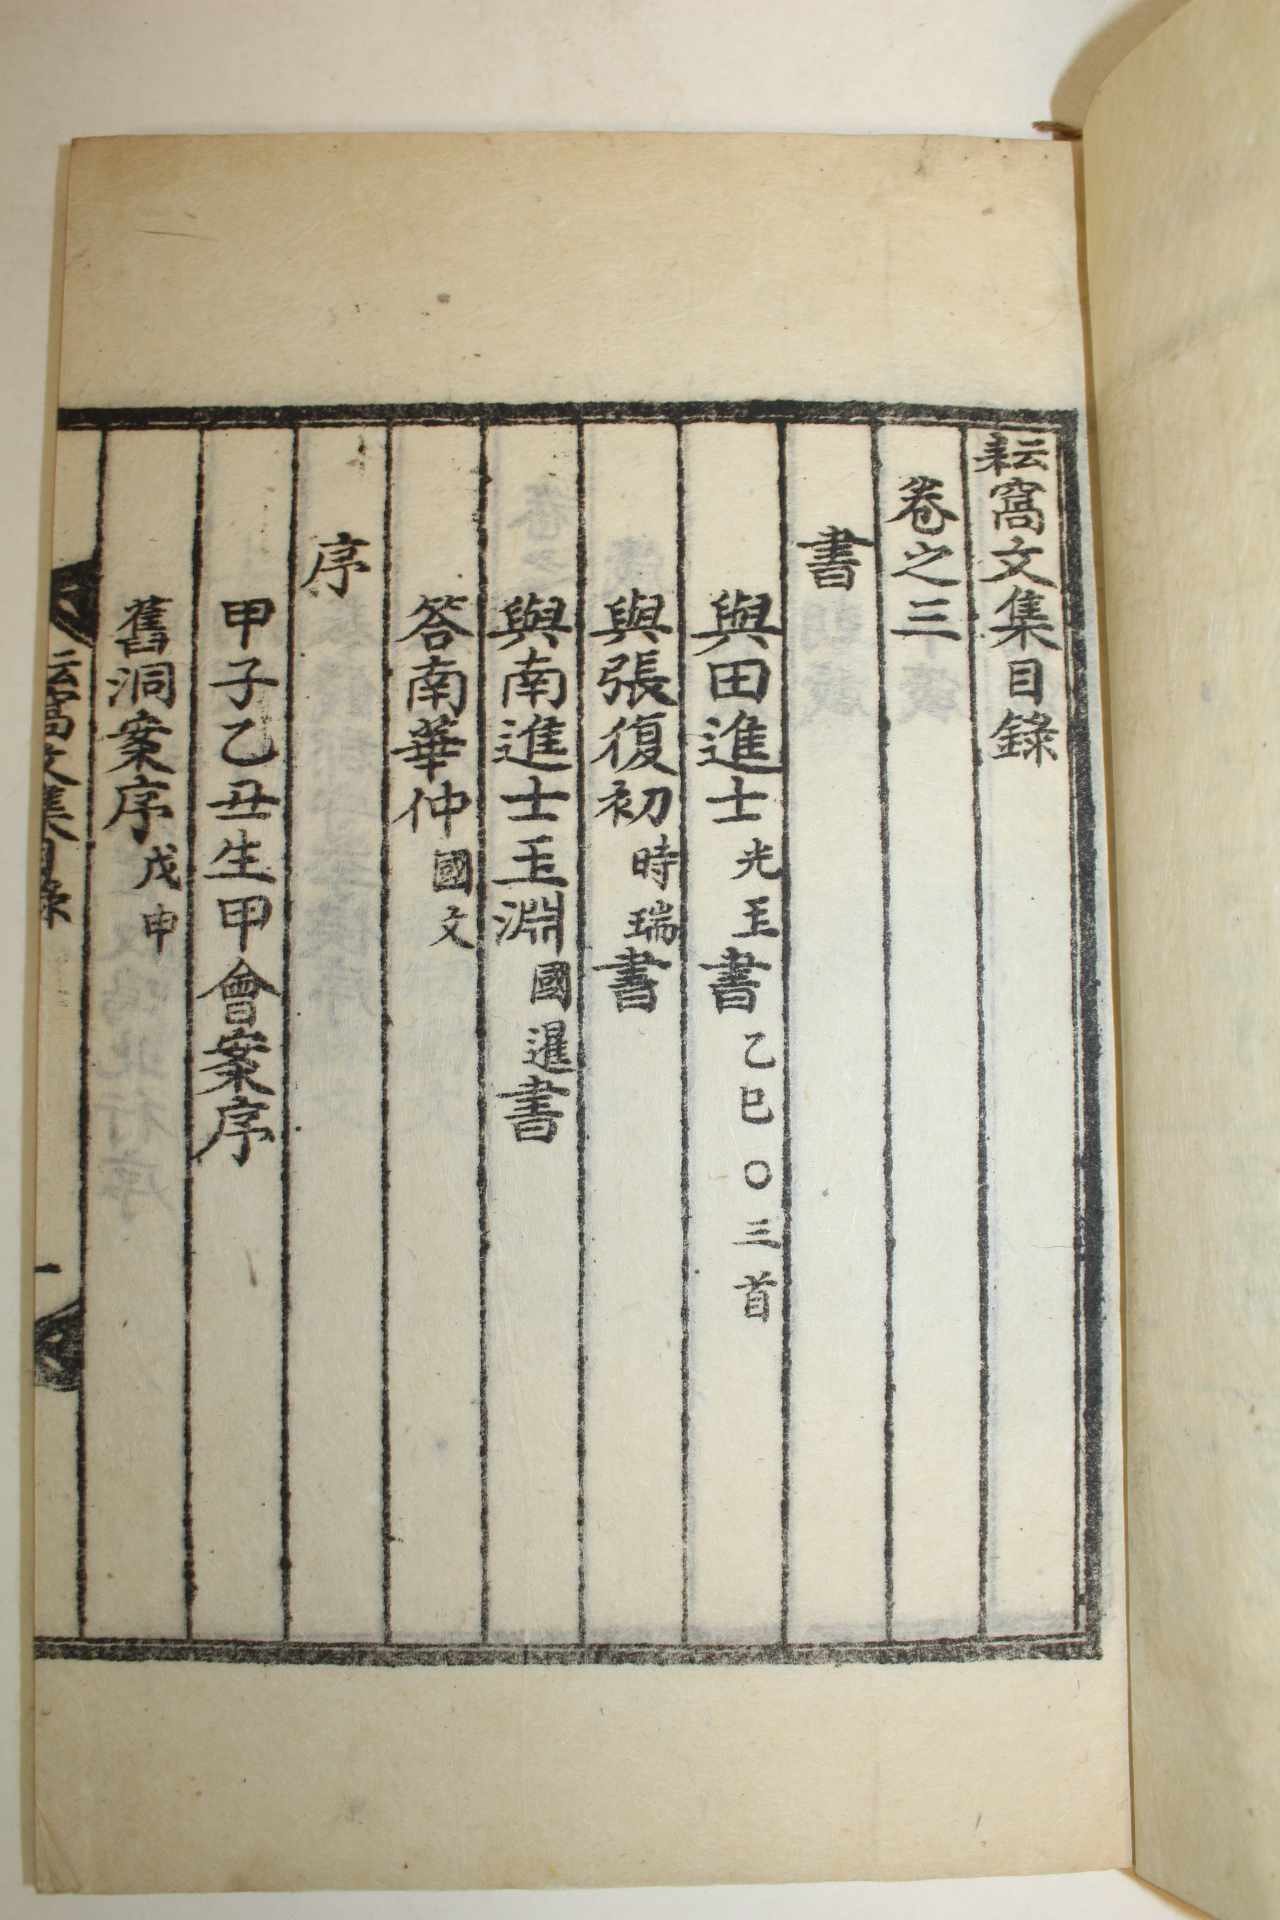 耘窩文集目錄
卷之三
書
與田進士光玉書乙巳〇三首
與張復初時瑞書
與南進士玉淵國暹書
答南華仲國文
序
甲子乙丑生甲會案序
舊洞案序戊申
耘窩文集目錄 一